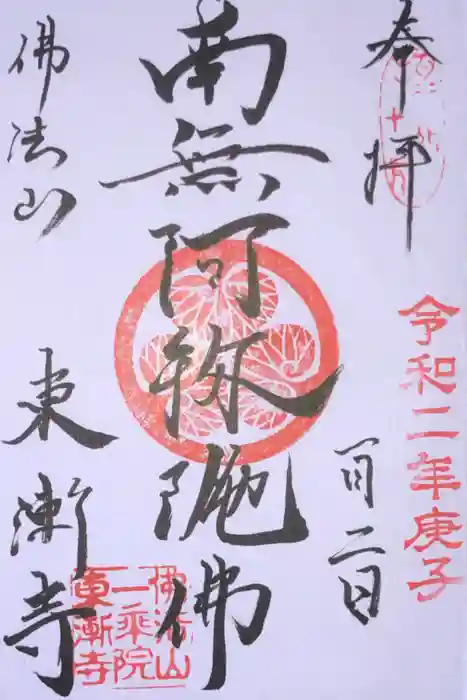 奉拝
令和二年庚子
一月二日
南無阿弥陀佛
佛法山
東漸寺
佛法山
一乘院
東漸寺